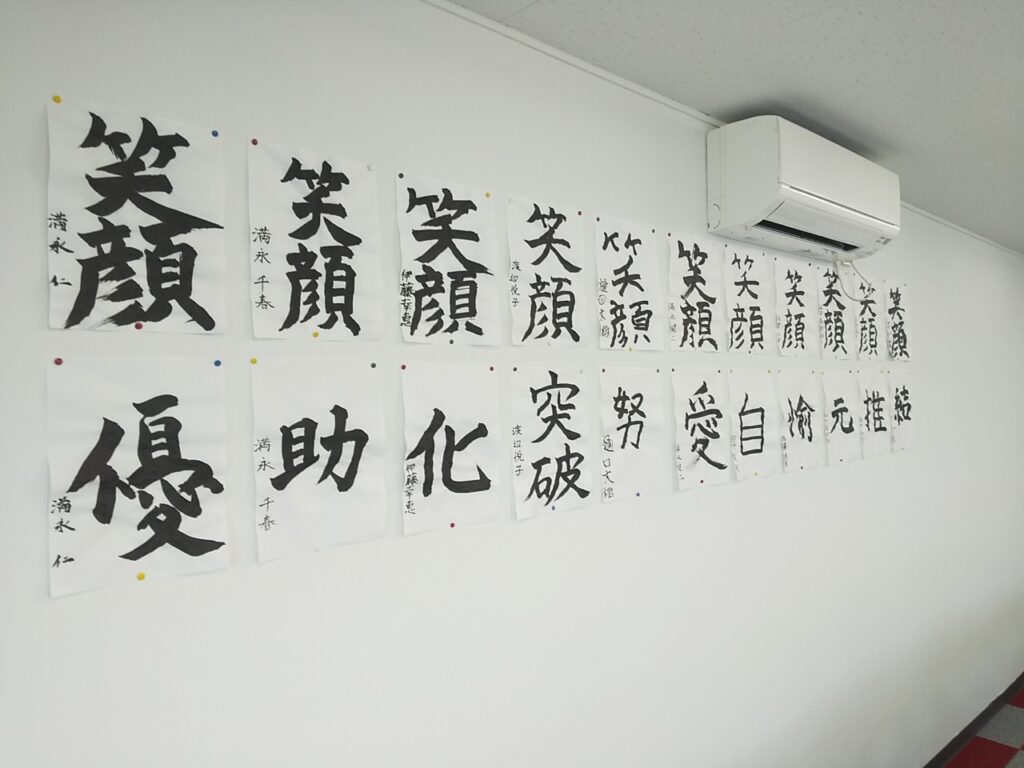 笑顔
満永 仁
笑顔
満永 千春
笑顔
伊藤幸恵
笑顔
渡辺悦子
笑顔
笑顔
笑顔
笑顔
笑顔
笑顔
笑顔
優
満永 仁
助
満永 千春
化
伊藤幸恵
突破
渡辺悦子
努
愛
自
愉
元
推
結